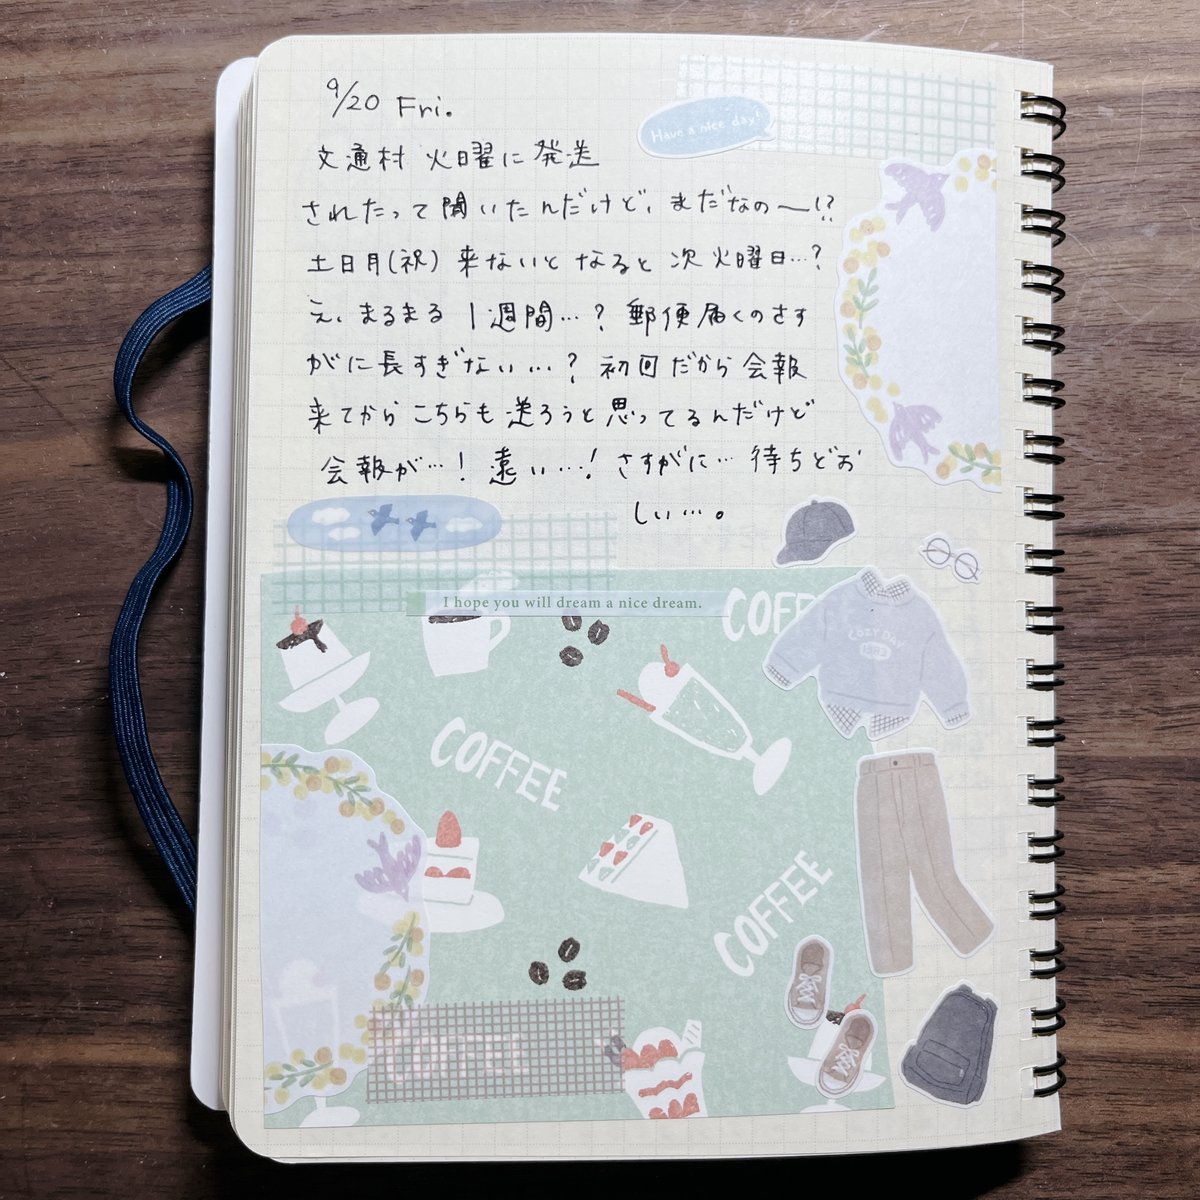 9/20 Fri.
Have a nice day!
文通村 火曜に発送
されたって聞いたんだけど、まだなの〜!?
土日月(祝) 来ないとなると次火曜日…?
え、まるまる1週間…? 郵便届くのさす
がに長すぎない…? 初回だから会報
来てからこちらも送ろうと思ってるんだけど
会報が…! 遠い…! さすがに… 待ちどお
しい…。
I hope you will dream a nice dream.
COFFEE
COZY DAY
COFFEE
COFFEE
COFFEE